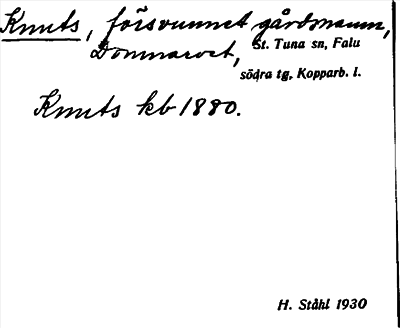 Knuts, försvunnet gårdsnamn,
Domnarvet, St. Tuna sn, Falu
södra tg, Kopparb. l.
Knuts kb 1880.
H. Ståhl 1930